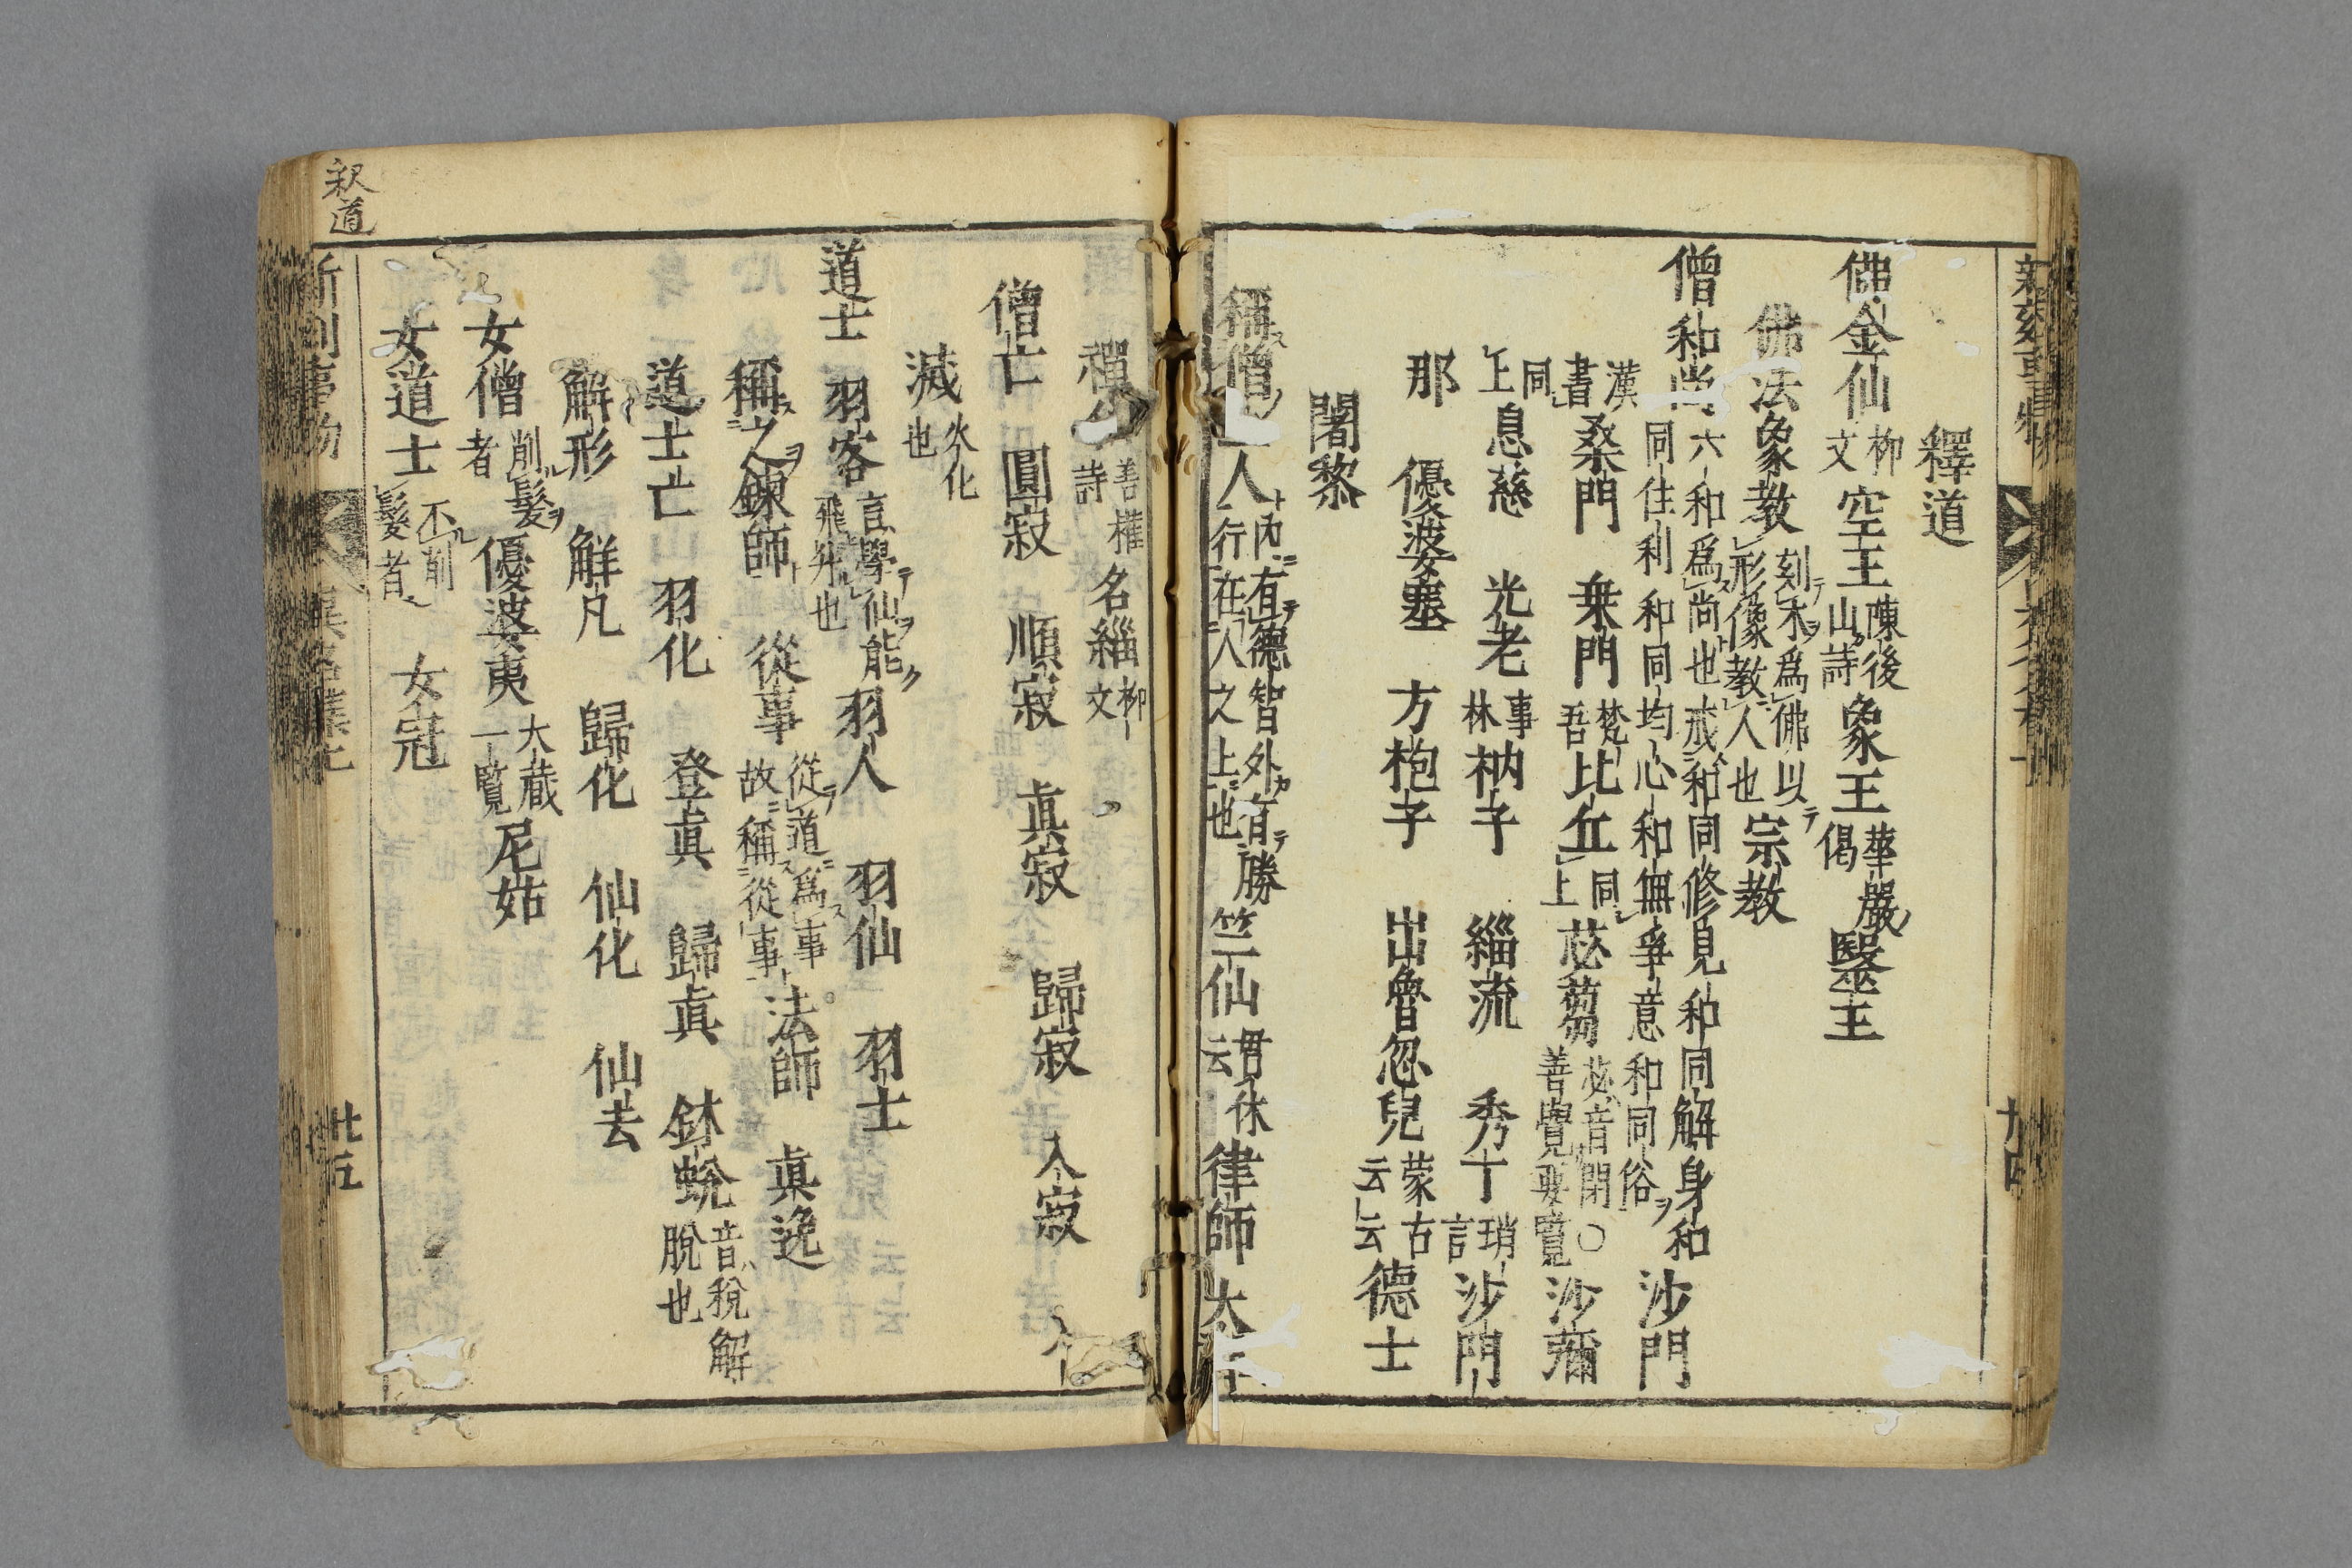 釋道
佛 金仙 柳文 空王 陳後山詩 象王 華嚴偈 醫王
佛法 象教 刻木爲佛以形像教人也 宗教
僧 和尚 六和爲尚也戒和同修見和同解身和同住利和同均心和無爭意和同俗 沙門
漢書 桑門 乗門 梵吾 比丘 同上 苾蒭 苾音閉○善覺要覽 沙彌
同上 息慈 光老 事林 衲子 緇流 秀才 瑣言 沙門
那 優婆塞 方袍子 出魯忽兒 蒙古云云 德士
闍黎
稱僧 人 内有德智外有勝行在人之上也 竺仙 君休云 律師
禪 善權詩 名緇 柳文
僧亡 圓寂 順寂 眞寂 歸寂 入寂 入
滅 火化也
道士 羽客 言學仙能飛昇也 羽人 羽仙 羽士
稱之 鍊師 從事 從道爲事故稱從事 法師 眞逸
道士亡 羽化 登眞 歸眞 鉢蛻 音稅解脫也
解形 解凡 歸化 仙化 仙去
女僧 削髮者 優婆夷 大藏一覽 尼姑
女道士 不削髮者 女冠
廿五
釈道